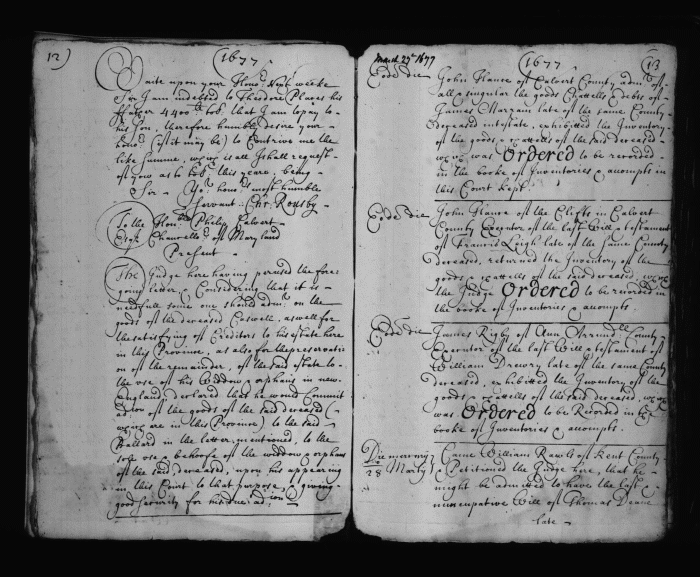 12)
1677
Waite upon your Hono:r Next weeke
Sr I am indebted to Theodore Places his
4400 lb tob: that I am to pay to
his Son, therefore humbly desire your
hono:r (if it may be) to Contrive me the
like summe, wch is all I shall request
of you as to tob: this yeare, being
Sr Yor: hono:rs most humble
Servant: Chr: Rousby
To the Hon:ble Philip Calvert
Esqr Chancello:r of Maryland
Present
The Judge here having perused the fore-
going letter & Considering that it is
needfull some one should adm:r on the
goods of the deceased Coswell, aswell for
the satisfying of Creditors to his estate here
in this Province, as also for the preservation
on of the remainder, of the said estate to
the use of his Widdow & orphans in new
England, declared that he would Commit
adcon of the goods of the said deceased (
wch are in this Province) to the said
Ballard in the letter mentioned, to the
sole use & behoofe of the widdow & orphans
of the said deceased, upon his appearing
in this Court to that purpose, & giving
good security for his due adcon
March 27th 1677
1677
13
Eode die John Stance of Calvert County adm:r of
all & singular the goods Chattells & debts of
James Marram late of the same County
deceased intestate, exhibited the Inventory
of the goods & chattells of the said deceased
wch was Ordered to be recorded
in the booke of Inventories & accompts in
this Court kept.
Eode die John Stance of the Clifts in Calvert
County Executor of the last Will & testament
of Francis Leigh late of the same County
deceased, returned the Inventory of the
goods & chattells of the said deceased, wch
the Judge Ordered to be recorded in
the booke of Inventories & accompts.
Eode die James Rigby of Ann Arrundll County
Executor of the last Will & testament of
William Drewry late of the same County
deceased, exhibited the Inventory of the
goods & chattells of the said deceased, wch
was Ordered to be Recorded in the
booke of Inventories & accompts.
Die 28 Martij Came William Rawls of Kent County
& Petitioned the Judge here, that he
might be admitted to have the last
nuncupative Will of Thomas Deane
late